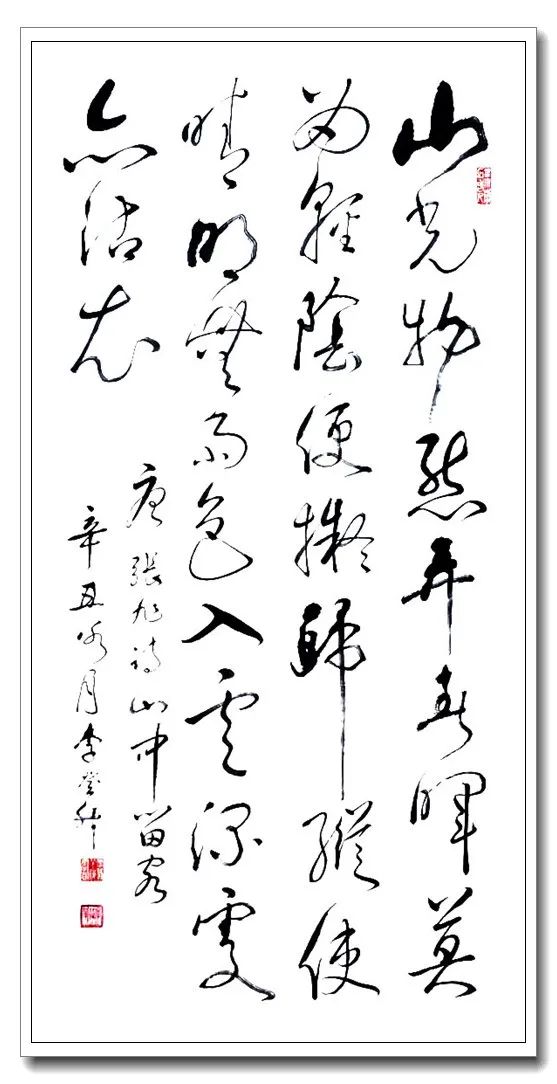 山光物態弄春暉莫
為輕陰便擬歸縱使
晴明無雨色入雲深處
亦沾衣
唐張旭詩山中留客
辛丑月李登